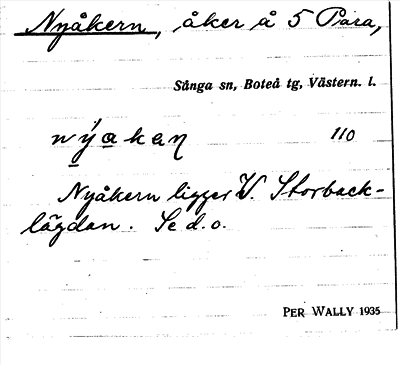 Nyåkern, åker å 5 Para,
Sånga sn, Boteå tg, Västern. l.
nýakaɳ 110
Nyåkern ligger V. Storback-
lägdan. Se d.o.
PER WALLY 1935